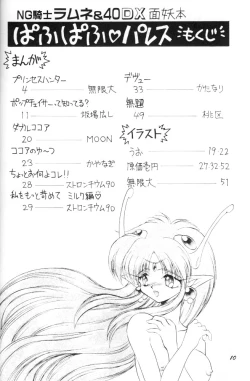 NG騎士ラムネ&40DX 面妖本
ぱふぱふ♡パレス もくじ
まんが
プリンセスハンター
4 無限大
ポップチェイサーって知ってる?
11 坂場広し
ダブルココア
20 MOON
ココアのゆ〜つ
23 かやなぎ
ちょっとお何よコレ!!
28 ストロンチウム90
私をもっと苛めて ミルク編
29 ストロンチウム90
デヴュー
33 かたなり
無題
49 桃区
イラスト
うお 19.22
原価壱円 27.32.52
無限大 51
10